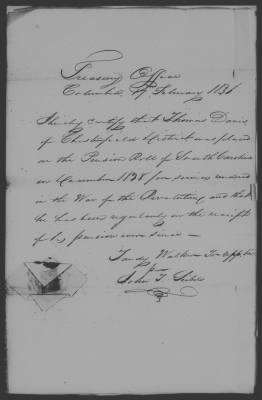 Treasury Office
Columbia 17 February 1836
I hereby certify that Thomas Davis
of Chesterfield District was placed
on the Pension Roll of South Carolina
in December 18 for services rendered
in the War of the Revolution, and that
he has been regularly in the receipt
of his pension ever since —
Tandy Walker Tr
for
John T.